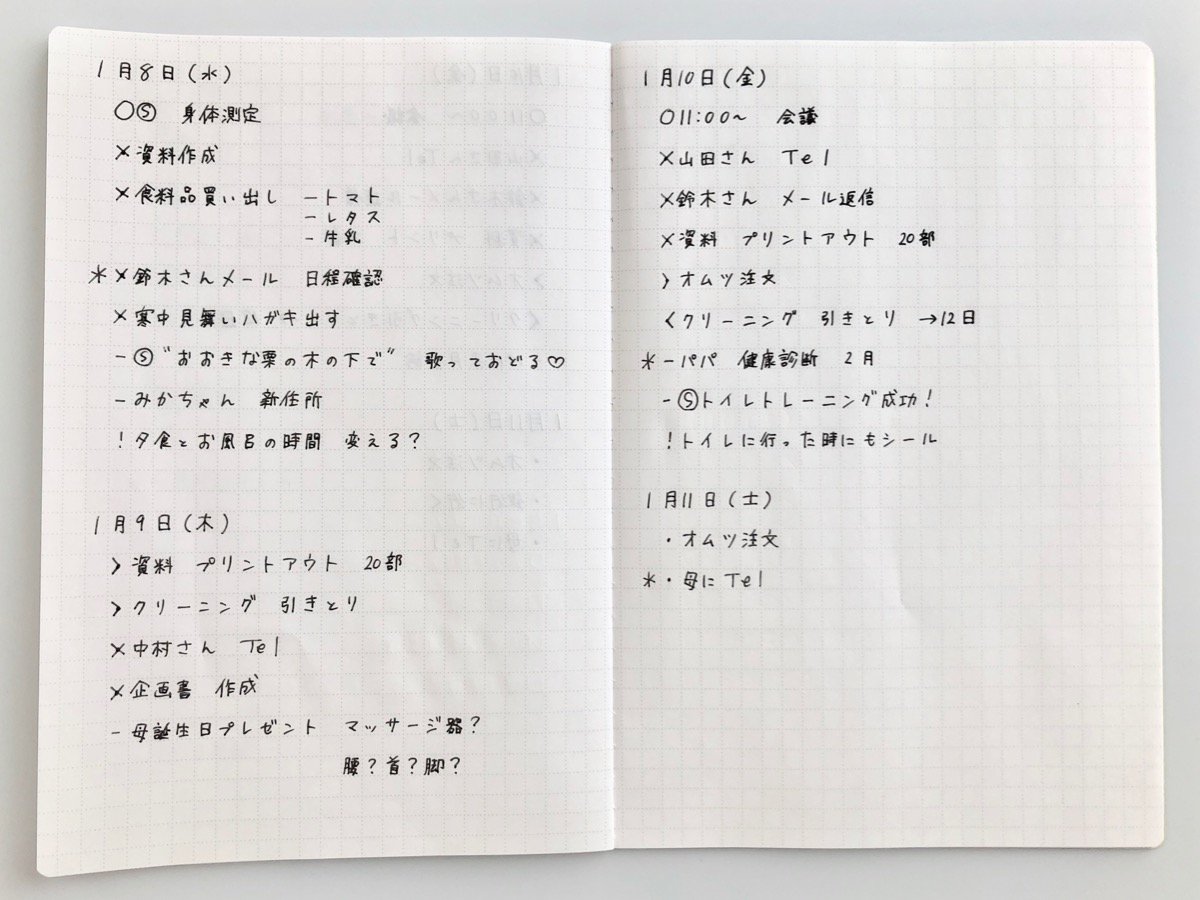 1月8日(水)
○Ⓢ 身体測定
×資料作成
×食料品買い出し －トマト
－レタス
－牛乳
*×鈴木さんメール 日程確認
×寒中見舞いハガキ出す
－Ⓢ"おおきな栗の木の下で" 歌っておどる♡
－みかちゃん 新住所
!夕食とお風呂の時間 変える?
1月9日(木)
>資料 プリントアウト 20部
>クリーニング 引きとり
×中村さん Tel
×企画書 作成
－母誕生日プレゼント マッサージ器?
腰?首?脚?
1月10日(金)
○11:00~ 会議
×山田さん Tel
×鈴木さん メール返信
×資料 プリントアウト 20部
>オムツ注文
<クリーニング 引きとり →12日
*－パパ 健康診断 2月
－Ⓢトイレトレーニング成功!
!トイレに行った時にもシール
1月11日(土)
・オムツ注文
*・母にTel